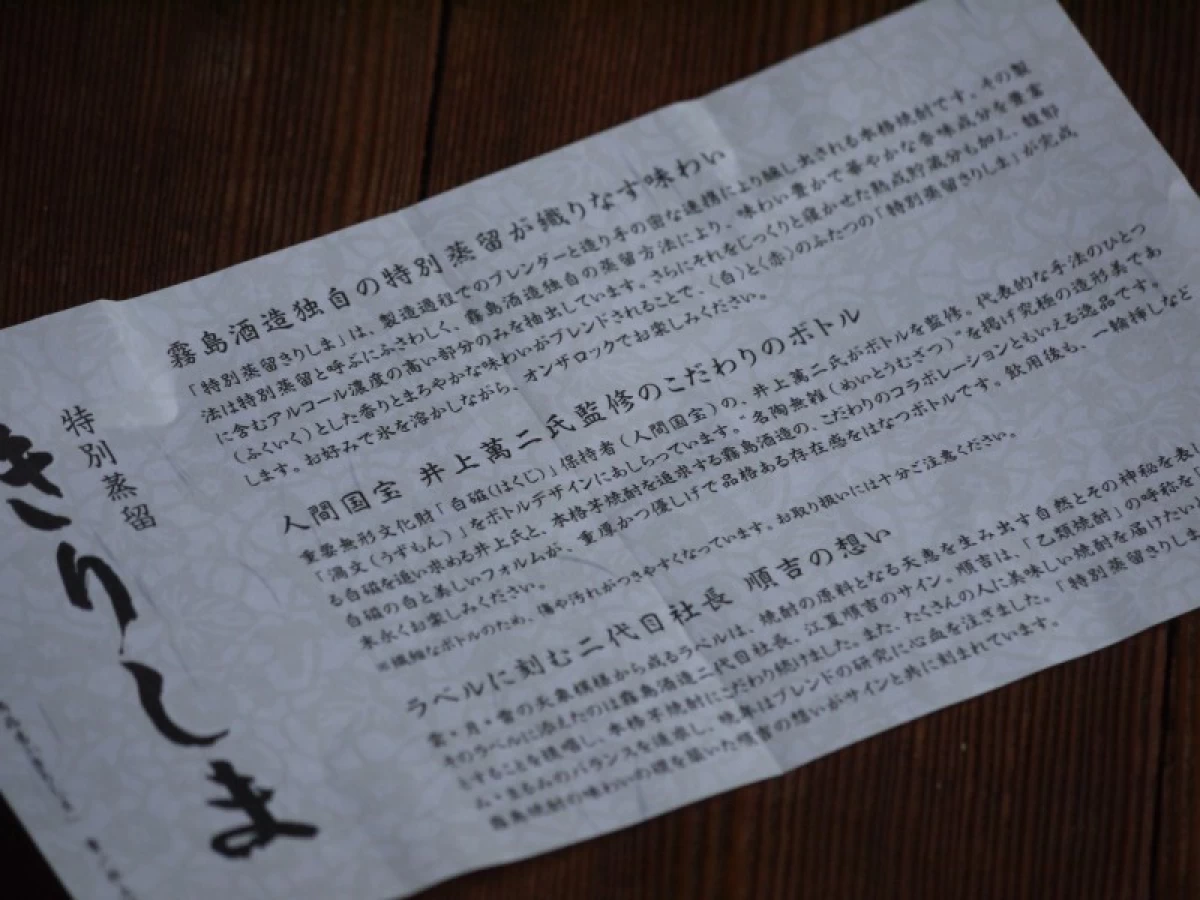 特別蒸留
きりしま
霧島酒造独自の特別蒸留が織りなす味わい
「特別蒸留きりしま」は、製造過程でのブレンダーと造り手の密な連携により醸し出される本格焼酎です。その製
法は特別蒸留と呼ぶにふさわしく、霧島酒造独自の蒸留方法により、味わい豊かで華やかな香味成分を豊富
に含むアルコール濃度の高い部分のみを抽出しています。さらにそれをじっくりと寝かせた熟成貯蔵分も加え、馥郁
(ふくいく)とした香りとまろやかな味わいがブレンドされることで、〈白〉と〈赤〉のふたつの「特別蒸留きりしま」が完成
します。お好みで氷を溶かしながら、オンザロックでお楽しみください。
人間国宝 井上萬二氏監修のこだわりのボトル
重要無形文化財「白磁(はくじ)」保持者(人間国宝)の、井上萬二氏がボトルを監修。代表的な手法のひとつ
「渦文(うずもん)」をボトルデザインにあしらっています。“名陶無雑(めいとうむざつ)”を掲げ究極の造形美であ
る白磁を追い求める井上氏と、本格芋焼酎を追求する霧島酒造の、こだわりのコラボレーションともいえる逸品です。
白磁の白と美しいフォルムが、重厚かつ優しげで品格ある存在感をはなつボトルです。飲用後も、一輪挿しなど
末永くお楽しみください。
※繊細なボトルのため、傷や汚れがつきやすくなっています。お取り扱いには十分ご注意ください。
ラベルに刻む二代目社長 順吉の想い
雲・月・雷の天象模様から成るラベルは、焼酎の原料となる天恵を生み出す自然とその神秘を表し
そのラベルに添えたのは霧島酒造二代目社長、江夏順吉のサイン。順吉は、「乙類焼酎」の呼称を
とすることを提唱し、本格芋焼酎にこだわり続けました。また、たくさんの人に美味しい焼酎を届けたい
ム・まるみのバランスを追求し、晩年はブレンドの研究に心血を注ぎました。「特別蒸留きりしま
霧島焼酎の味わいの礎を築いた順吉の想いがサインと共に刻まれています。